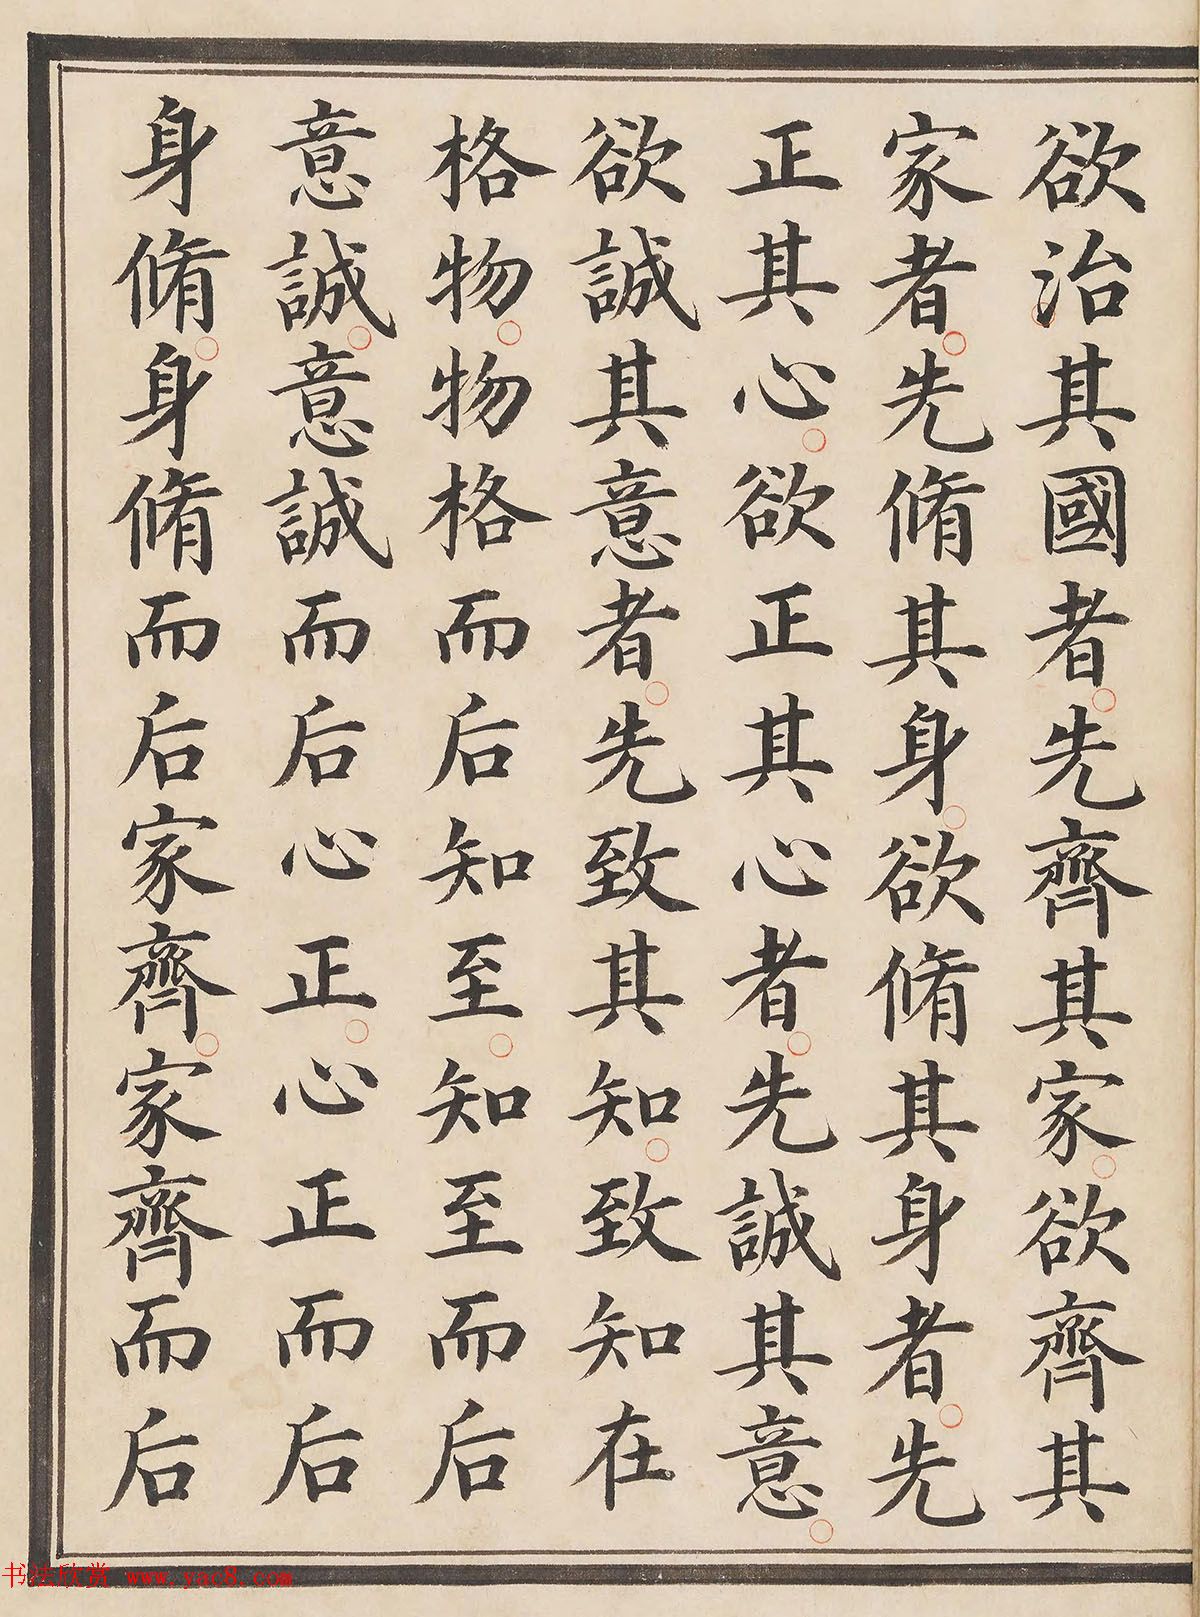 欲治其國者。先齊其家。欲齊其
家者。先脩其身。欲脩其身者。先
正其心。欲正其心者。先誠其意。
欲誠其意者。先致其知。致知在
格物。物格而后知至。知至而后
意誠。意誠而后心正。心正而后
身脩。身脩而后家齊。家齊而后
书法欣赏 www.yac8.com